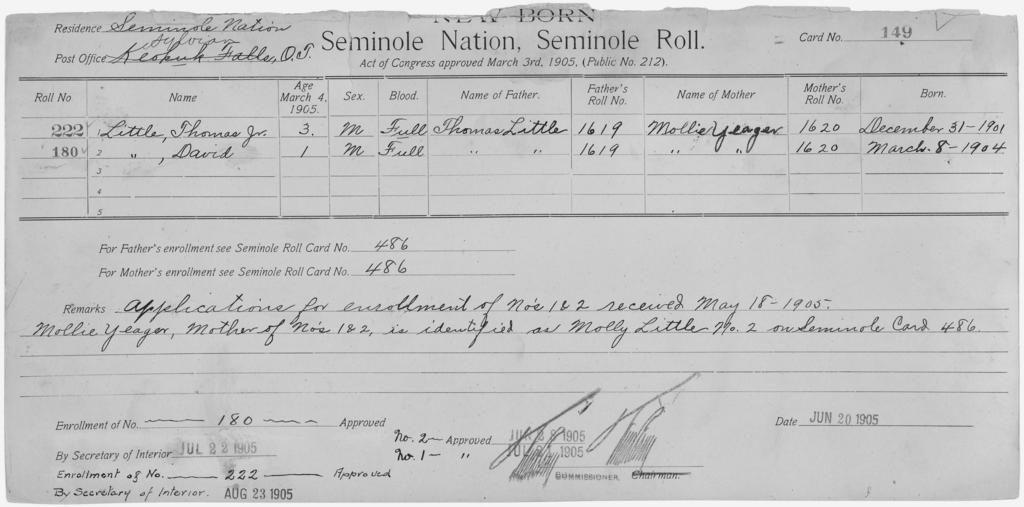 NEW BORN
Residence Seminole Nation
Seminole Nation, Seminole Roll.
Card No. 149
Sylvian
Post Office Keokuk Falls, O.T.
Act of Congress approved March 3rd, 1905, (Public No. 212).
Roll No Name Age March 4, 1905. Sex. Blood. Name of Father. Father's Roll No. Name of Mother Mother's Roll No. Born.
222 1 Little, Thomas Jr. 3. M Full Thomas Little 1619 Mollie Yeager 1620 December 31-1901
180 2 " , David 1 M Full " " 1619 " " 1620 March. 8-1904
3
4
5
For Father's enrollment see Seminole Roll Card No. 486
For Mother's enrollment see Seminole Roll Card No. 486
Remarks Applications for enrollment of No's 1 & 2 received May 18-1905.
Mollie Yeager, Mother of No's 1 & 2, is identified as Molly Little No. 2 on Seminole Card 486.
Enrollment of No. 180 Approved
Date JUN 20 1905
No. 2 - Approved 1905
By Secretary of Interior JUL 22 1905
No. 1 - " 1905
Enrollment of No. 222 Approved
COMMISSIONER Chairman.
By Secretary of Interior. AUG 23 1905